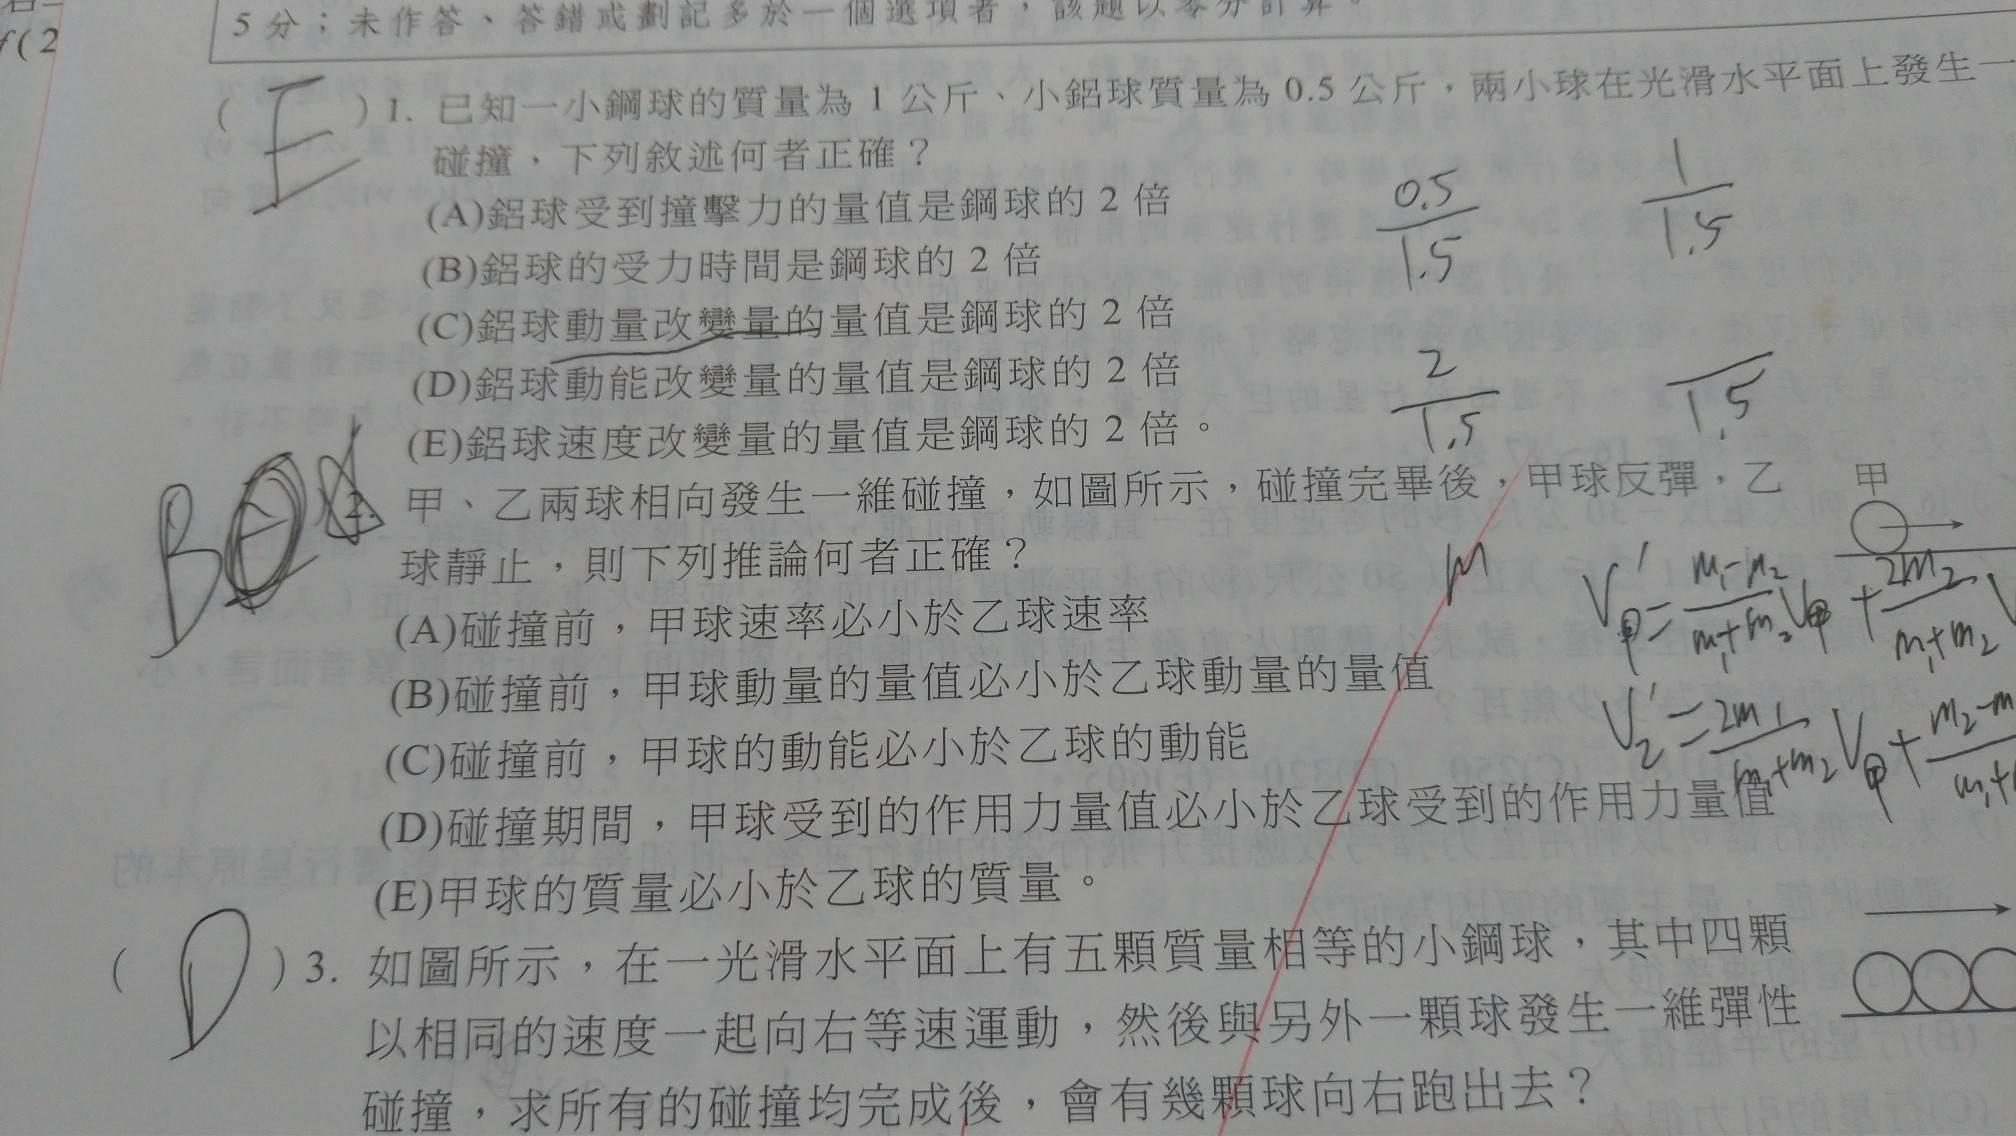 f(2
5分；未作答、答錯或劃記多於一個選項者，該題以零分計算。
( E )1. 已知一小鋼球的質量為 1 公斤、小鋁球質量為 0.5 公斤，兩小球在光滑水平面上發生一
碰撞，下列敘述何者正確？
(A)鋁球受到撞擊力的量值是鋼球的 2 倍
(B)鋁球的受力時間是鋼球的 2 倍
(C)鋁球動量改變量的量值是鋼球的 2 倍
(D)鋁球動能改變量的量值是鋼球的 2 倍
(E)鋁球速度改變量的量值是鋼球的 2 倍。
0.5/1.5
1/1.5
2/1.5
1.5
B
2. 甲、乙兩球相向發生一維碰撞，如圖所示，碰撞完畢後，甲球反彈，乙
甲
球靜止，則下列推論何者正確？
(A)碰撞前，甲球速率必小於乙球速率
(B)碰撞前，甲球動量的量值必小於乙球動量的量值
(C)碰撞前，甲球的動能必小於乙球的動能
(D)碰撞期間，甲球受到的作用力量值必小於乙球受到的作用力量值
(E)甲球的質量必小於乙球的質量。
M
V甲' = (m1-m2)/(m1+m2) V甲 + 2m2/(m1+m2) V
V2' = 2m1/(m1+m2) V甲 + m2-m
( D )3. 如圖所示，在一光滑水平面上有五顆質量相等的小鋼球，其中四顆
以相同的速度一起向右等速運動，然後與另外一顆球發生一維彈性
碰撞，求所有的碰撞均完成後，會有幾顆球向右跑出去？